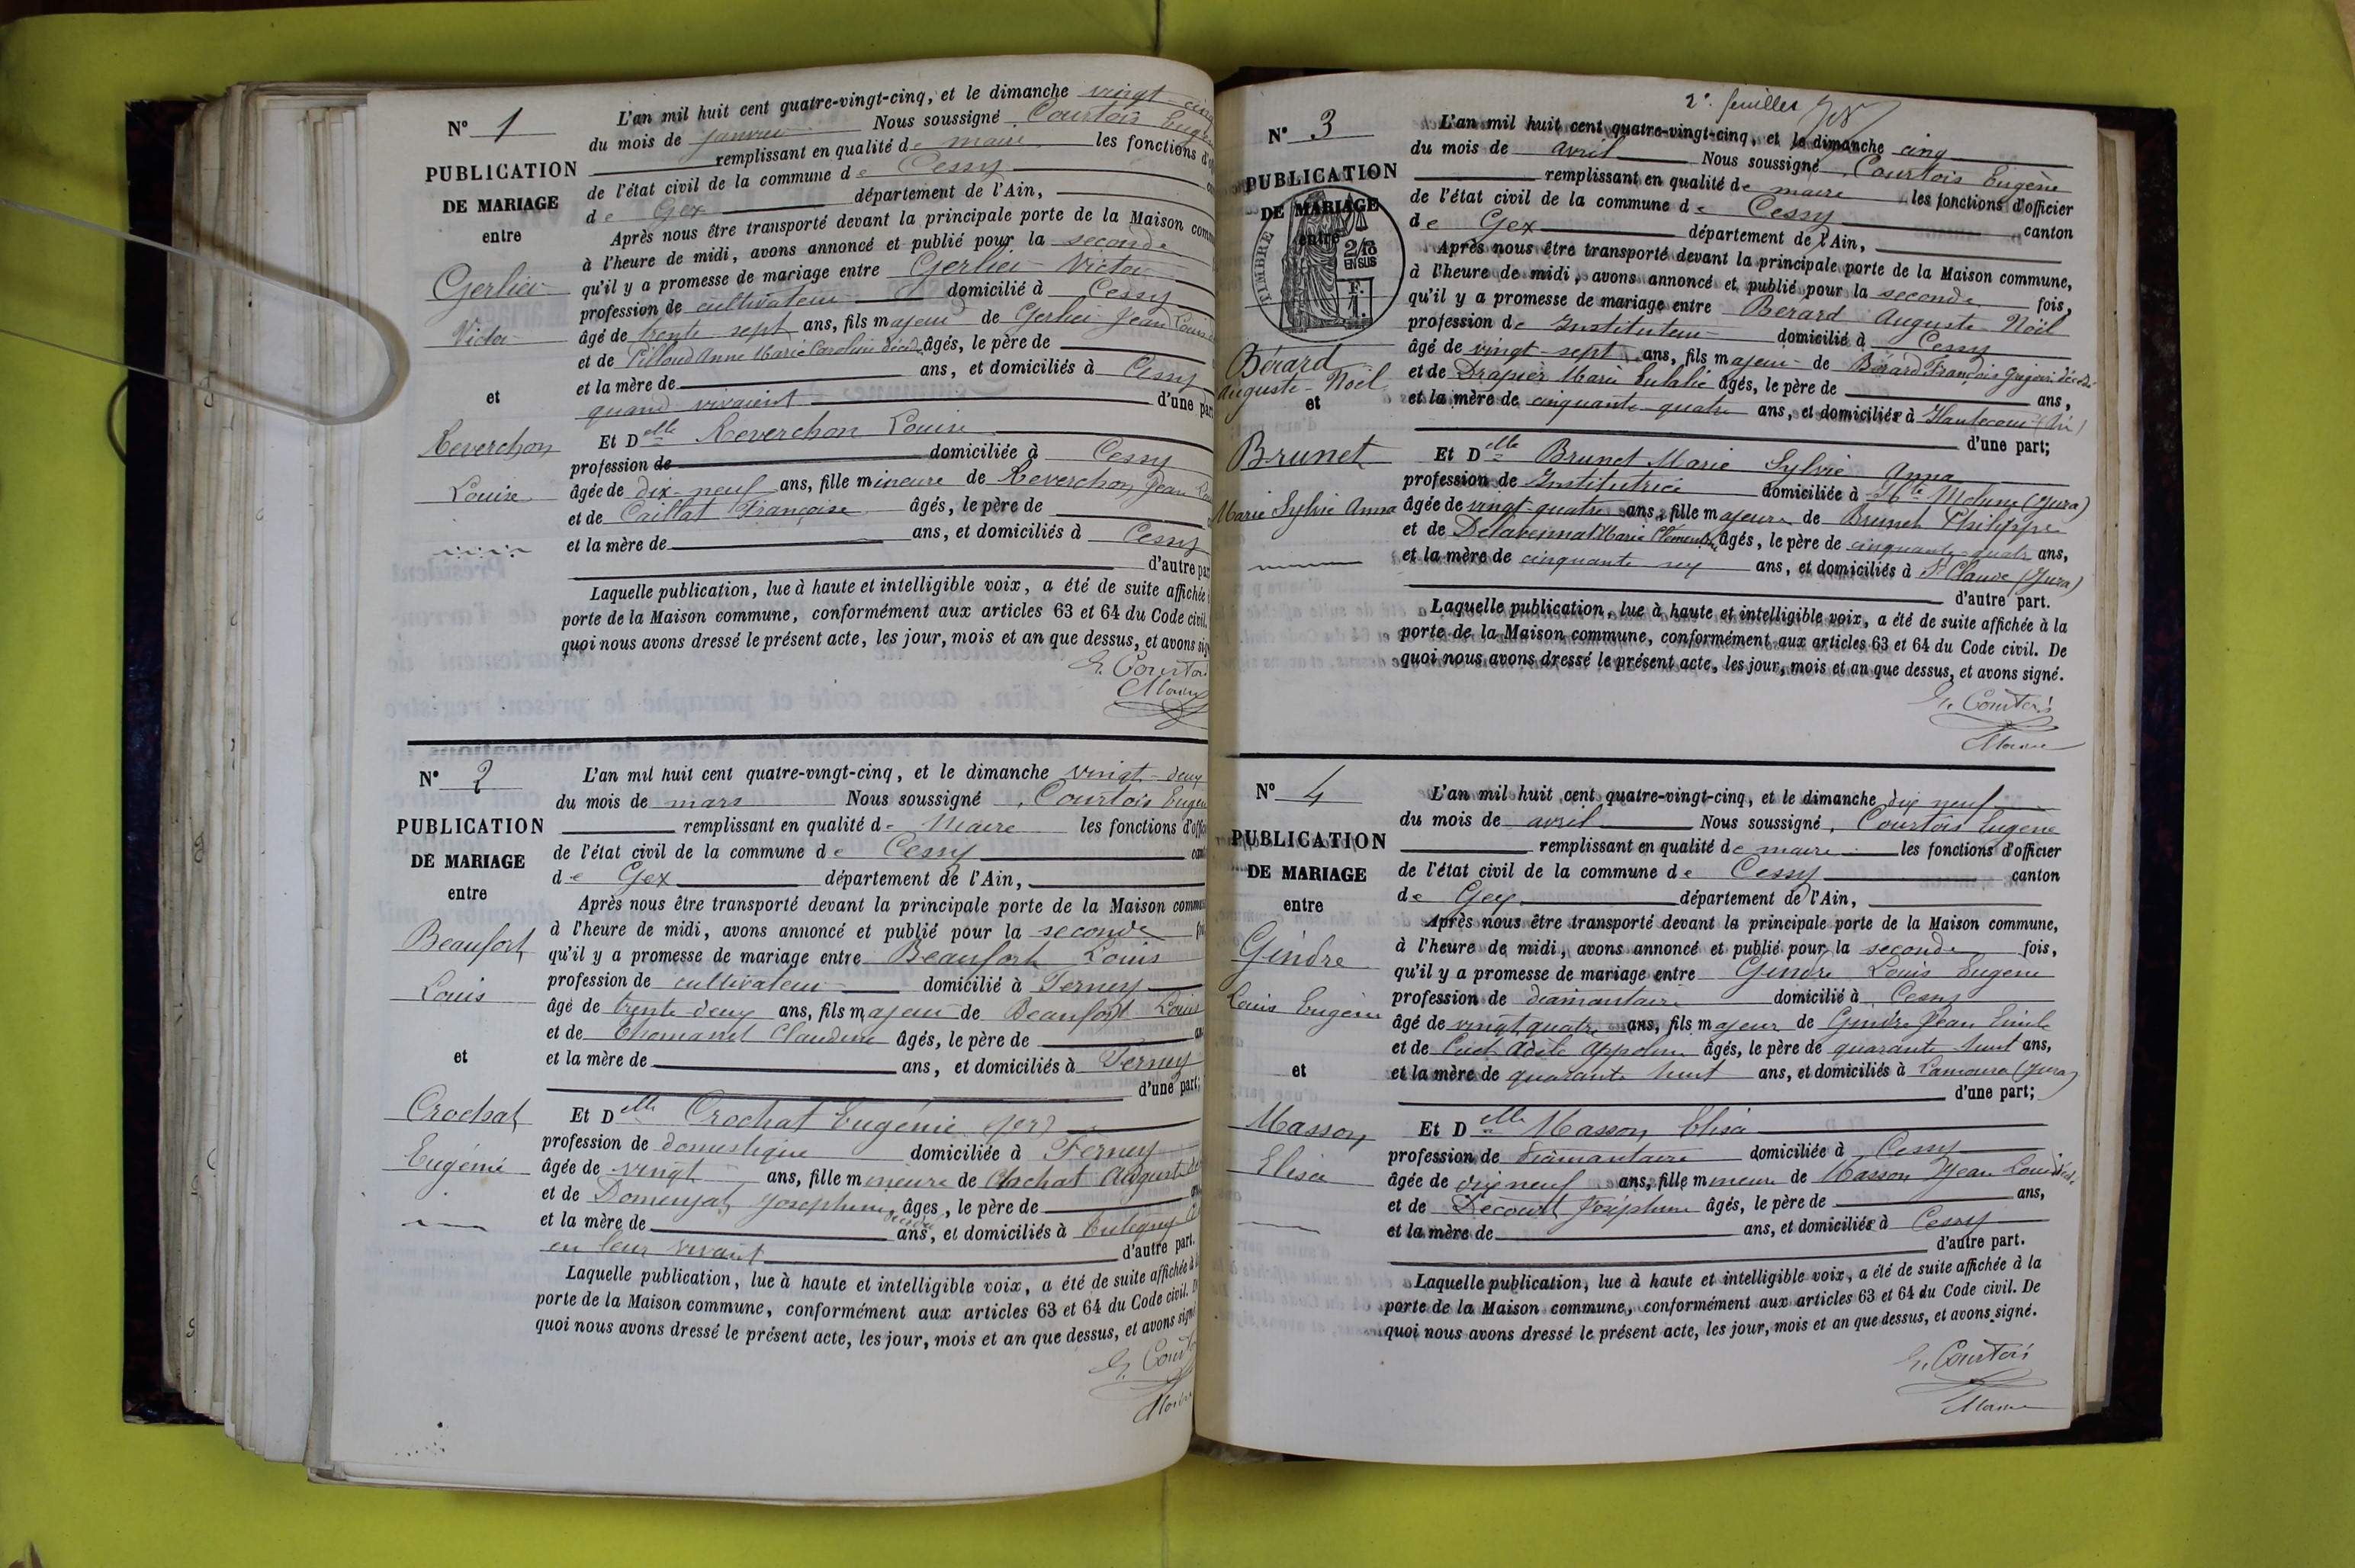 N° 1
PUBLICATION
DE MARIAGE
entre
Gerlier
Victor
et
Reverchon
Louise
L'an mil huit cent quatre-vingt-cinq, et le dimanche vingt cinq
du mois de janvier Nous soussigné Courtois Eugène
remplissant en qualité de maire les fonctions d'
de l'état civil de la commune de Cessy
de Gex département de l'Ain,
Après nous être transporté devant la principale porte de la Maison comm
à l'heure de midi, avons annoncé et publié pour la seconde
qu'il y a promesse de mariage entre Gerlier Victor
profession de cultivateur domicilié à Cessy
âgé de trente sept ans, fils majeur de Gerlier Jean Louis
et de Pilloud Anne Marie Caroline décd. âgés, le père de
et la mère de ans, et domiciliés à Cessy
quand vivaient d'une part
Et Delle Reverchon Louise
profession de domiciliée à Cessy
âgée de dix-neuf ans, fille mineure de Reverchon Jean
et de Caillat Françoise âgés, le père de
et la mère de ans, et domiciliés à Cessy
d'autre par
Laquelle publication, lue à haute et intelligible voix, a été de suite affichée
porte de la Maison commune, conformément aux articles 63 et 64 du Code civil.
quoi nous avons dressé le présent acte, les jour, mois et an que dessus, et avons sig
E. Courtois
Maire
N° 2
PUBLICATION
DE MARIAGE
entre
Beaufort
Louis
et
Crochat
Eugénie
L'an mil huit cent quatre-vingt-cinq, et le dimanche vingt-deux
du mois de mars Nous soussigné Courtois Eugène
remplissant en qualité de Maire les fonctions d'offi
de l'état civil de la commune de Cessy can
de Gex département de l'Ain,
Après nous être transporté devant la principale porte de la Maison commun
à l'heure de midi, avons annoncé et publié pour la seconde fo
qu'il y a promesse de mariage entre Beaufort Louis
profession de cultivateur domicilié à Ferney
âgé de trente deux ans, fils majeur de Beaufort Louis
et de Claudine âgés, le père de an
et la mère de ans, et domiciliés à Ferney
d'une part;
Et Delle Crochat Eugénie
profession de domestique domiciliée à Ferney
âgée de vingt ans, fille mineure de Crochat Auguste
et de Domenjat Josephine, décédés âgés, le père de
et la mère de ans, et domiciliés à
en leur vivant d'autre part.
Laquelle publication, lue à haute et intelligible voix, a été de suite affichée à
porte de la Maison commune, conformément aux articles 63 et 64 du Code civil. D
quoi nous avons dressé le présent acte, les jour, mois et an que dessus, et avons signé
E. Courtois
Maire
2e. feuillet
N° 3
PUBLICATION
DE MARIAGE
entre
TIMBRE
2/10
EN SUS
F.
1.
Bérard
Auguste-Noël
et
Brunet
Marie Sylvie Anna
L'an mil huit cent quatre-vingt-cinq, et le dimanche cinq
du mois de avril Nous soussigné Courtois Eugène
remplissant en qualité de maire les fonctions d'officier
de l'état civil de la commune de Cessy canton
de Gex département de l'Ain,
Après nous être transporté devant la principale porte de la Maison commune,
à l'heure de midi, avons annoncé et publié pour la seconde fois,
qu'il y a promesse de mariage entre Bérard Auguste Noël
profession de Instituteur domicilié à Cessy
âgé de vingt-sept ans, fils majeur de Bérard François décédé
et de Drapier Marie Eulalie âgés, le père de ans,
et la mère de cinquante-quatre ans, et domiciliés à Hautecour (Ain)
d'une part;
Et Delle Brunet Marie Sylvie Anna
profession de Institutrice domiciliée à Hte Molune (Jura)
âgée de vingt-quatre ans, fille majeure de Brunet Philippe
et de Delavenna Marie Clémentine âgés, le père de cinquante-quatre ans,
et la mère de cinquante six ans, et domiciliés à St Claude (Jura)
d'autre part.
Laquelle publication, lue à haute et intelligible voix, a été de suite affichée à la
porte de la Maison commune, conformément aux articles 63 et 64 du Code civil. De
quoi nous avons dressé le présent acte, les jour, mois et an que dessus, et avons signé.
E. Courtois
Maire
N° 4
PUBLICATION
DE MARIAGE
entre
Gindre
Louis Eugène
et
Masson
Elisa
L'an mil huit cent quatre-vingt-cinq, et le dimanche dix neuf
du mois de avril Nous soussigné, Courtois Eugène
remplissant en qualité de maire les fonctions d'officier
de l'état civil de la commune de Cessy canton
de Gex département de l'Ain,
Après nous être transporté devant la principale porte de la Maison commune,
à l'heure de midi, avons annoncé et publié pour la seconde fois,
qu'il y a promesse de mariage entre Gindre Louis Eugène
profession de diamantaire domicilié à Cessy
âgé de vingt quatre ans, fils majeur de Gindre Jean Emile
et de Adèle âgés, le père de quarante huit ans,
et la mère de quarante huit ans, et domiciliés à Lamoura (Jura)
d'une part;
Et Delle Masson Elisa
profession de diamantaire domiciliée à Cessy
âgée de dix neuf ans, fille mineure de Masson Jean Louis décd.
et de Décourt Joséphine âgés, le père de ans,
et la mère de ans, et domiciliés à Cessy
d'autre part.
Laquelle publication, lue à haute et intelligible voix, a été de suite affichée à la
porte de la Maison commune, conformément aux articles 63 et 64 du Code civil. De
quoi nous avons dressé le présent acte, les jour, mois et an que dessus, et avons signé.
E. Courtois
Maire